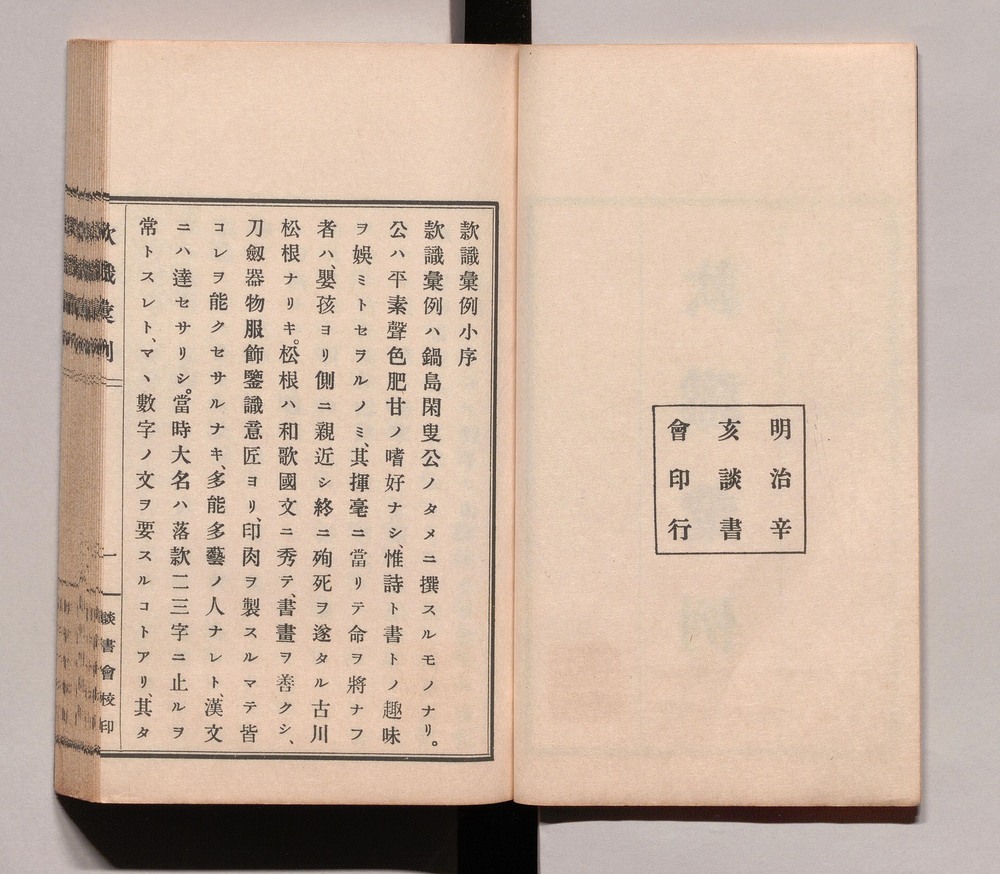 明治辛
亥談書
會印行
款識彙例小序
款識彙例ハ鍋島閑叟公ノタメニ撰スルモノナリ。
公ハ平素聲色肥甘ノ嗜好ナシ、惟詩ト書トノ趣味
ヲ娯ミトセヲルノミ、其揮毫ニ當リテ命ヲ將ナフ
者ハ、嬰孩ヨリ側ニ親近シ終ニ殉死ヲ遂タル古川
松根ナリキ。松根ハ和歌國文ニ秀テ、書畫ヲ善クシ、
刀劔器物服飾鑒識意匠ヨリ、印肉ヲ製スルマテ皆
コレヲ能クセサルナキ、多能多藝ノ人ナレト、漢文
ニハ達セサリシ。當時大名ハ落款二三字ニ止ルヲ
常トスレト、マヽ數字ノ文ヲ要スルコトアリ、其タ
款識彙例
一
談書會校印